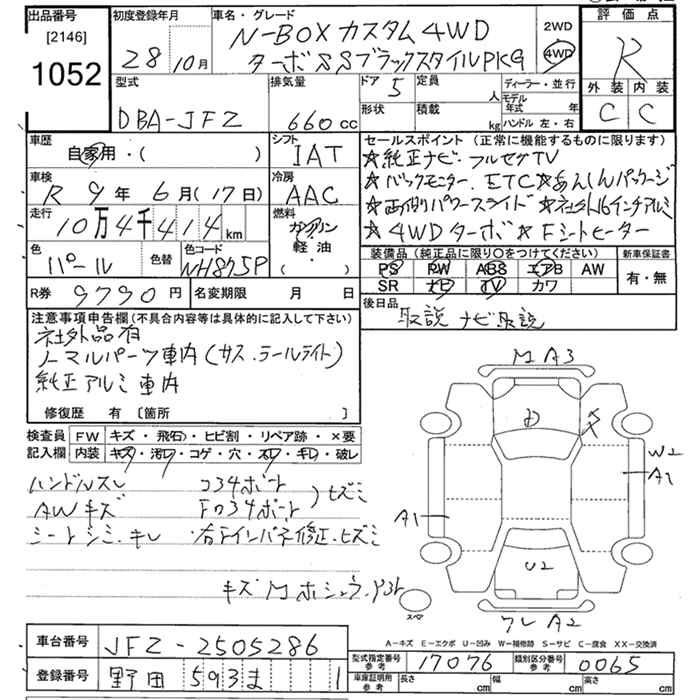 出品番号
[2146]
1052
初度登録年月
28 10月
車名・グレード
N-BOXカスタム4WD
ターボSSブラックスタイルPKG
2WD
4WD
評価点
R
外装 内装
C C
型式
DBA-JF2
排気量
660cc
ドア 5
定員
人
形状
積載
kg
ディーラー・並行
モデル年式 年
ハンドル 左・右
車歴
自家用・( )
シフト
IAT
車検
R 9年 6月(17日)
冷房
AAC
走行
10万4千414km
燃料
ガソリン
軽油・
( )
色
パール
色替
色コード
NH875P
R券 9790円
名変期限 月 日
セールスポイント (正常に機能するものに限ります)
☆純正ナビ・フルセグTV
☆バックモニター.ETC☆あんしんパッケージ
☆両側パワースライド☆社外16インチアルミ
☆4WDターボ☆Fシートヒーター
装備品 (純正品に限り○をつけてください)
PS PW ABS エアB AW
SR ナビ TV カワ
新車保証書
有・無
後日品
取説 ナビ取説
注意事項申告欄(不具合内容等は具体的に記入して下さい)
社外品有
ノーマルパーツ車内(サス.テールライト)
純正アルミ車内
修復歴 有 [箇所 ]
検査員
記入欄
FW キズ・飛石・ヒビ割・リペア跡・×要
内装 キズ・汚レ・コゲ・穴・スレ・キレ・破レ
ハンドルスレ
AWキズ
シートシミ.キレ
コ34ボート
Fロ34ボート
)ヒズミ
右テインパネ修正.ヒズミ
キズMホシュウ.アクト
M A3
W2
A1
A1
U2
ワレA2
スペア
A-キズ E-エクボ U-凹み W-補修跡 S-サビ C-腐食 XX-交換済
車台番号 JF2-2505286
登録番号 野田 593ま 1
型式指定番号
参考
17076
類別区分番号
参考
0065
車庫証明
参考
長さ cm 幅 cm 高さ cm